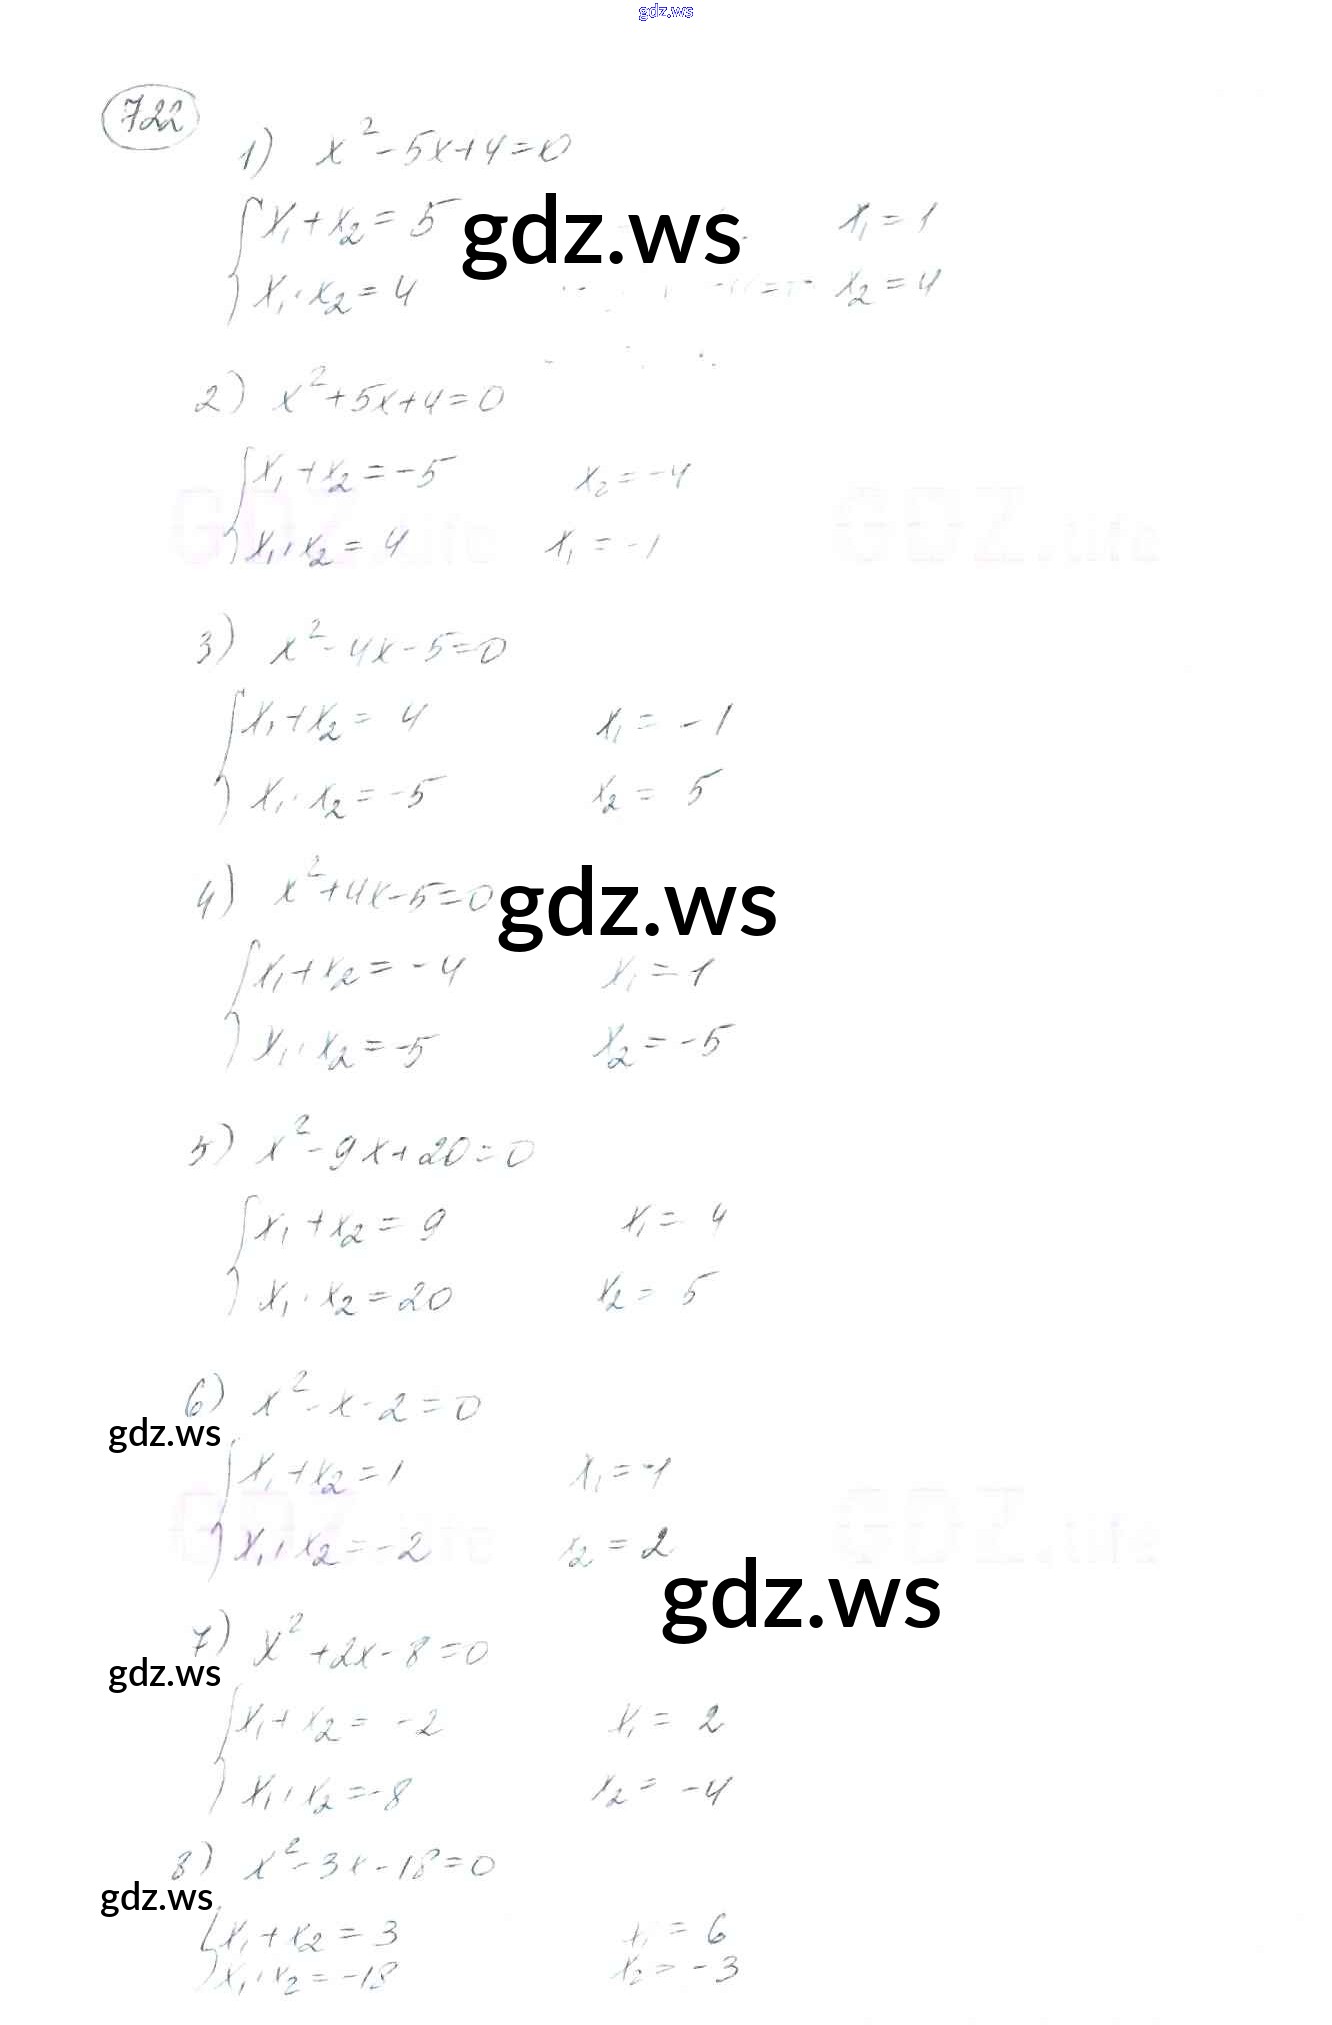 gdz.ws
722
1) x² - 5x + 4 = 0
{ x₁ + x₂ = 5 gdz.ws x₁ = 1
x₁ · x₂ = 4 x₂ = 4
2) x² + 5x + 4 = 0
{ x₁ + x₂ = -5 x₂ = -4
x₁ · x₂ = 4 x₁ = -1
GDZ.life GDZ.life
3) x² - 4x - 5 = 0
{ x₁ + x₂ = 4 x₁ = -1
x₁ · x₂ = -5 x₂ = 5
4) x² + 4x - 5 = 0 gdz.ws
{ x₁ + x₂ = -4 x₁ = 1
x₁ · x₂ = -5 x₂ = -5
5) x² - 9x + 20 = 0
{ x₁ + x₂ = 9 x₁ = 4
x₁ · x₂ = 20 x₂ = 5
6) x² - x - 2 = 0
gdz.ws
{ x₁ + x₂ = 1 x₁ = -1
x₁ · x₂ = -2 x₂ = 2
GDZ.life GDZ.life
gdz.ws
7) x² + 2x - 8 = 0
gdz.ws
{ x₁ + x₂ = -2 x₁ = 2
x₁ · x₂ = -8 x₂ = -4
8) x² - 3x - 18 = 0
gdz.ws
{ x₁ + x₂ = 3 x₁ = 6
x₁ · x₂ = -18 x₂ = -3